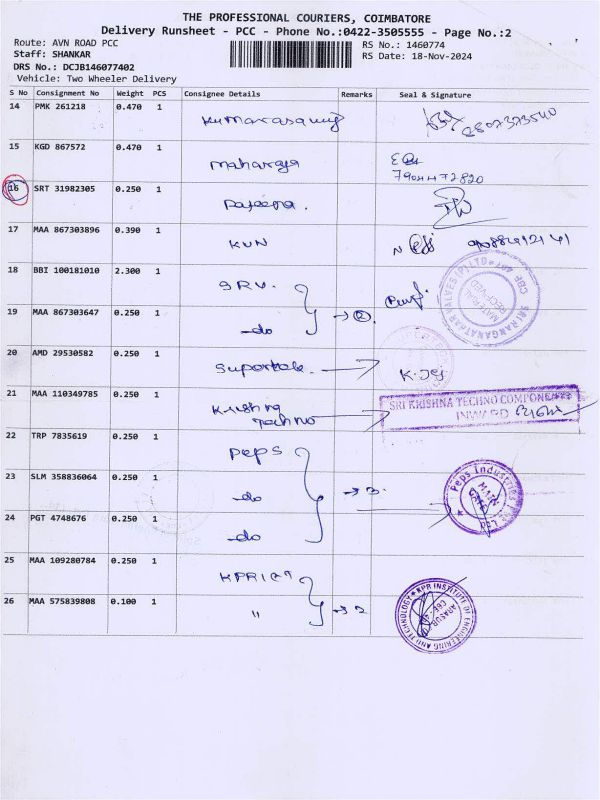 THE PROFESSIONAL COURIERS, COIMBATORE
Delivery Runsheet - PCC - Phone No.:0422-3505555 - Page No.:2
Route: AVN ROAD PCC
RS No.: 1460774
Staff: SHANKAR
RS Date: 18-Nov-2024
DRS No.: DCJB146077402
Vehicle: Two Wheeler Delivery
S No Consignment No Weight PCS Consignee Details Remarks Seal & Signature
14 PMK 261218 0.470 1 Kumarasamy
15 KGD 867572 0.470 1 Maharaja
16 SRT 31982305 0.250 1
17 MAA 867303896 0.390 1 KUN
18 BBI 100181010 2.300 1 SRV.
SRI RANGANATHAR VALVES (P) LTD
MATERIAL RECEIVED
19 MAA 867303647 0.250 1 -do → 2
20 AMD 29530582 0.250 1
21 MAA 110349785 0.250 1 Krishna Techno
SRI KRISHNA TECHNO COMPONENTS
INWARD
22 TRP 7835619 0.250 1 Peps
23 SLM 358836064 0.250 1 -do → 3
Peps Industries
MAIN GATE
24 PGT 4748676 0.250 1 -do
25 MAA 109280784 0.250 1
26 MAA 575839808 0.100 1 " → 2
KPR INSTITUTE OF ENGINEERING AND TECHNOLOGY